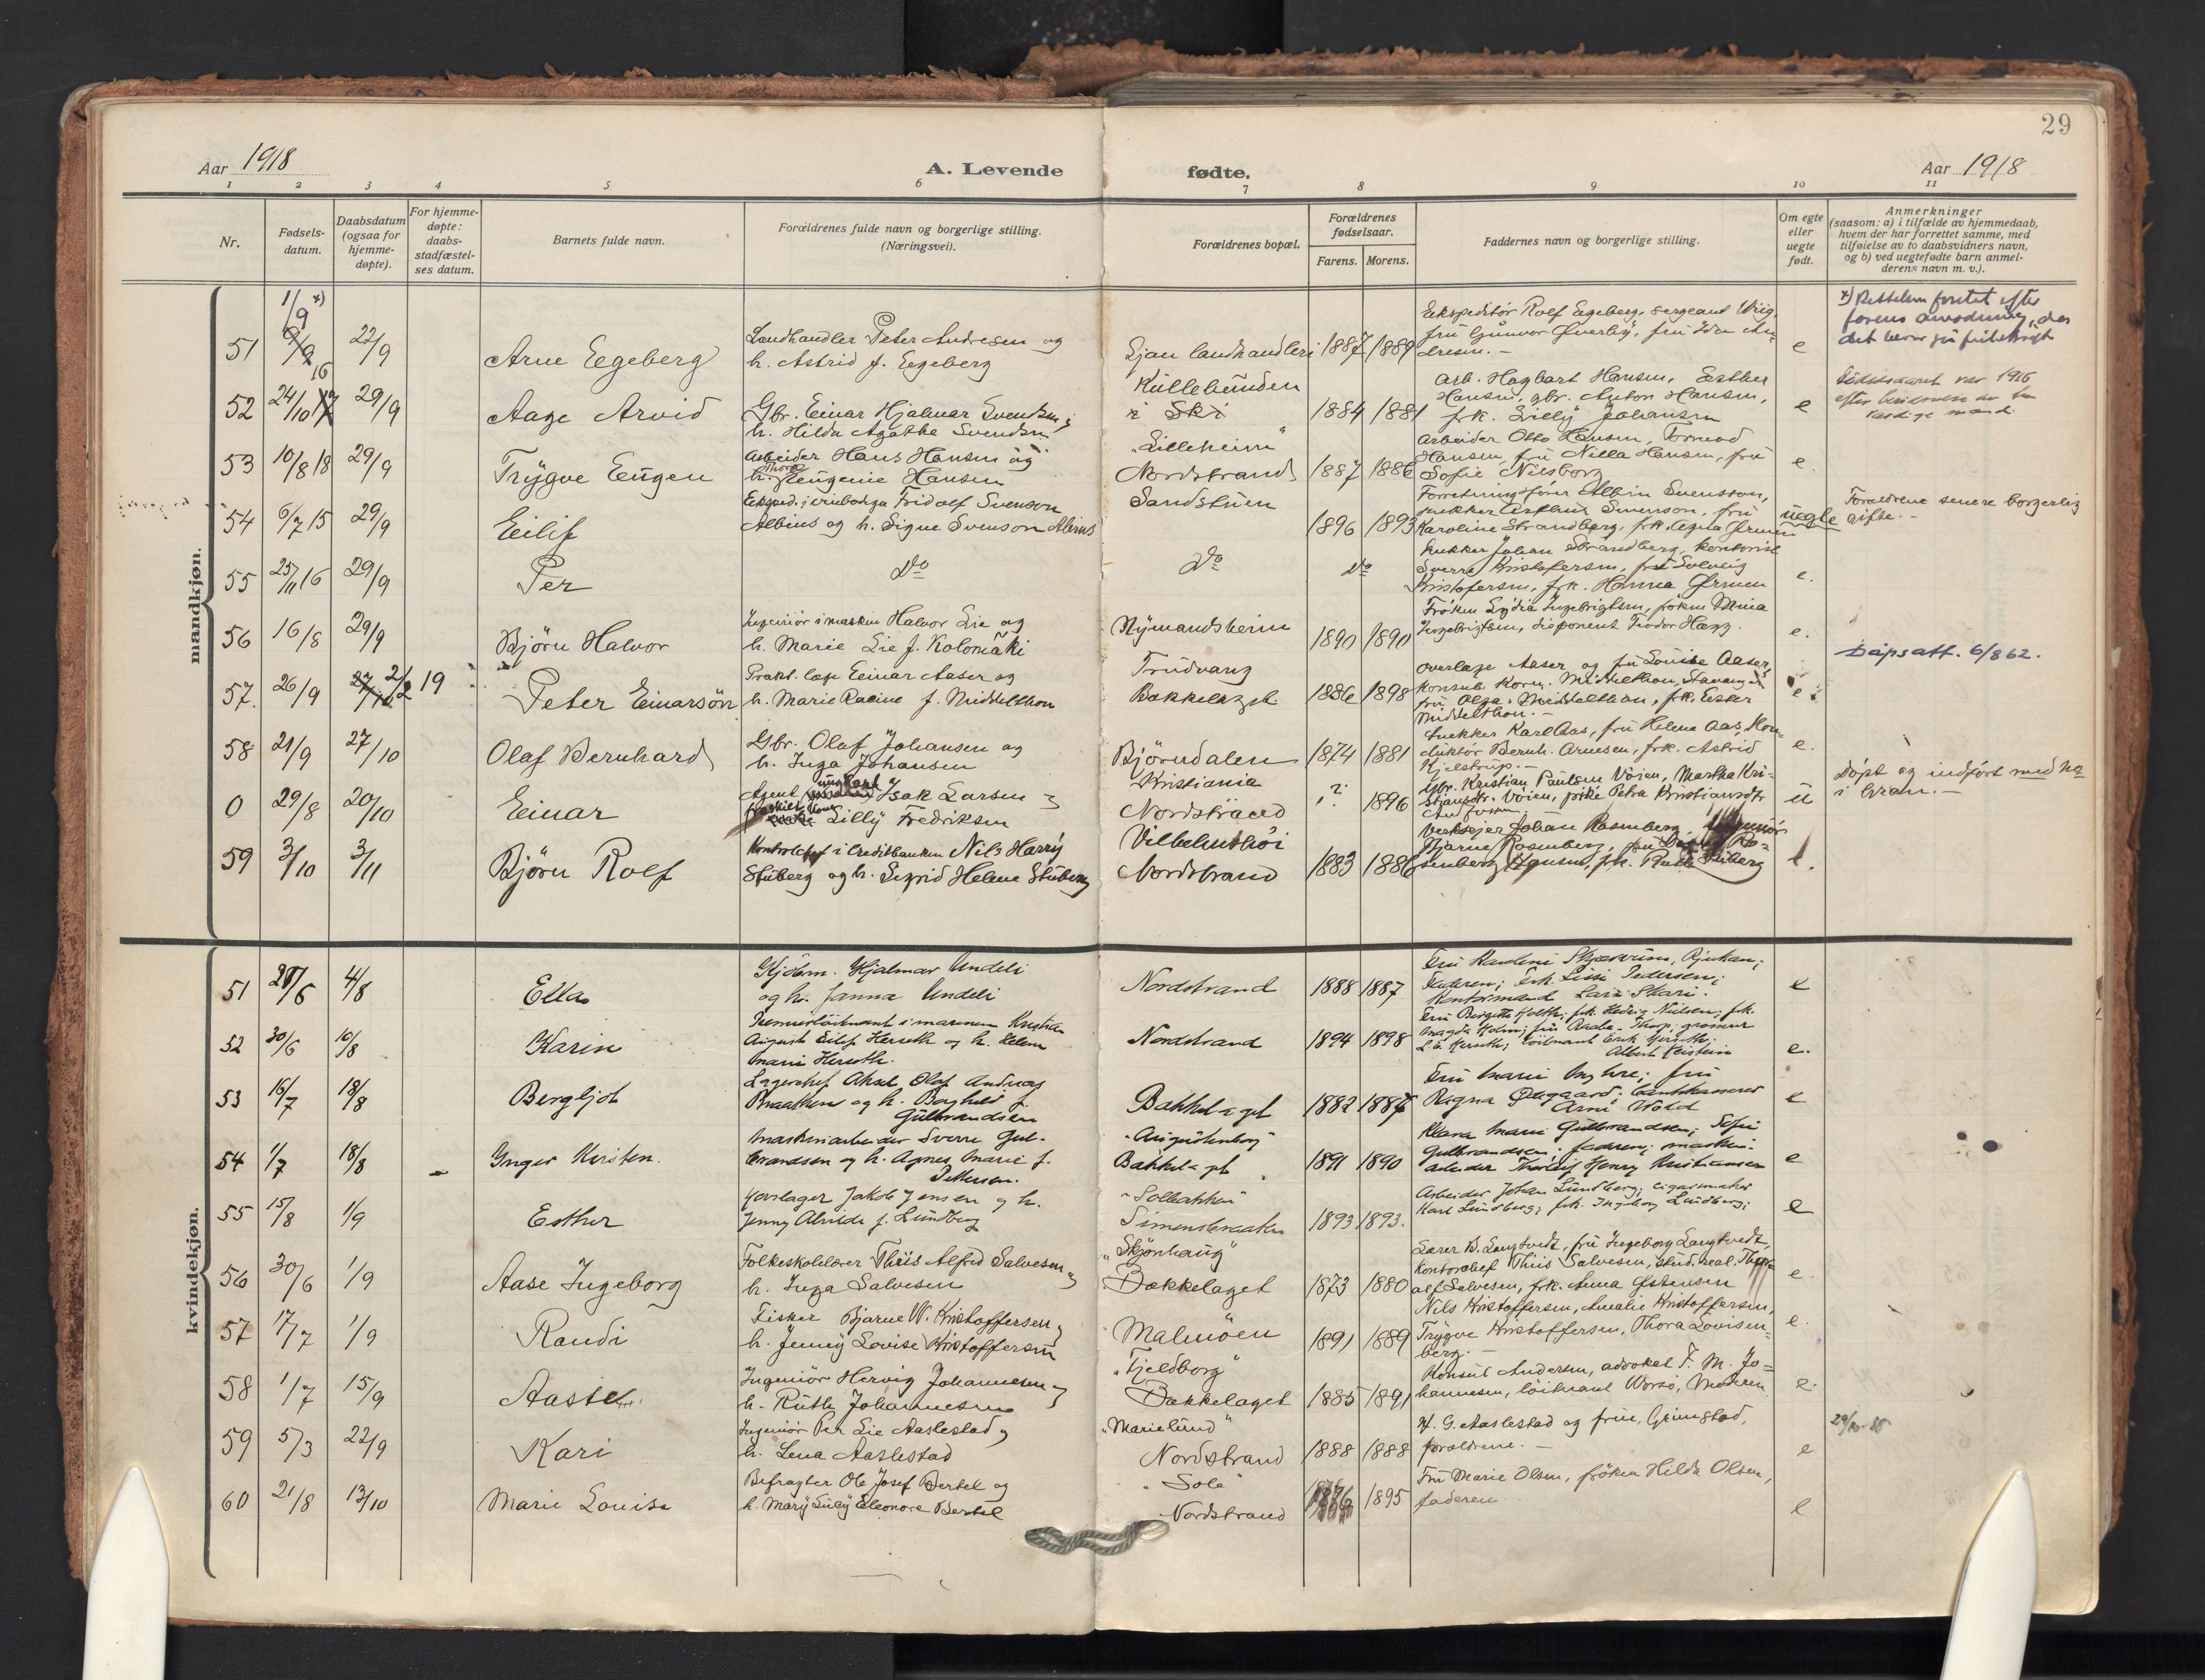 29
Aar 1918
A. Levende fødte.
Aar 1918
1 2 3 4 5 6 7 8 9 10 11
Nr.
Fødsels-
datum.
Daabsdatum
(ogsaa for
hjemme-
døpte).
For hjemme-
døpte:
daabs-
stadfæstel-
ses datum.
Barnets fulde navn.
Forældrenes fulde navn og borgerlige stilling.
(Næringsvei).
Forældrenes bopæl.
Forældrenes
fødselsaar.
Farens. Morens.
Faddernes navn og borgerlige stilling.
Om egte
eller
uegte
født.
Anmerkninger
(saasom: a) i tilfælde av hjemmedaab,
hvem der har forrettet samme, med
tilføielse av to daabsvidners navn,
og b) ved uegtefødte barn anmel-
derens navn m. v.).
mandkjøn.
51 1/9 x) 22/9
Arne Egeberg
Landhandler Peter Andresen og
h. Astrid f. Egeberg
Ljan landhandleri
1887 1889
Ekspeditör Rolf Egeberg, sergeant Wiig,
fru Gunvor Överby, fru Ida An-
dresen.-
e
52 24/10 16 29/9
Aage Arvid
Gbr. Einar Hjalmar Svendsen og
h. Hilda Agathe Svendsen
Kullebunden
i Ski
1884 1881
Arb. Hagbart Hansen, Esther
Hansen, gbr. Anton Hansen,
frk. Lilly Johansen
e
Födselsaaret var 1916
53 10/8 18 29/9
Trygve Eugen
Arbeider Hans Hansen og
h. Thora Eugenie Hansen
"Lilleheim"
Nordstrand
1887 1886
Arbeider Otto Hansen, Tormod
Hansen, fru Nilla Hansen, fru
Sofie Nilsborg
e
54 6/7 15 29/9
Eilif
Eksped. i vinbodga Fridolf Svenson
Albius og h. Signe Svenson Albius
Sandstuen
1896 1893
Forretningsförer Albin Svensson,
snekker Arthur Svenson, fru
Karoline Strandberg, frk. Agna Ørmen
uegte
Forældrene senere borgerlig
gifte.-
55 25/11 16 29/9
Per
do
do
do
Snekker Johan Strandberg, kontorist
Sverre Kristofersen, fru Solveig
Kristofersen, frk. Hanna Ørmen
e.
56 16/8 29/9
Björn Halvor
Ingeniör i marken Halvor Lie og
h. Marie Lie f. Kolomaki
Nymandsheim
1890 1890
Fröken Lydia Ingebrigtsen, fröken Mina
Ingebrigtsen, disponent Teodor Hagg.
e.
57. 26/9 2/2 19
Peter Einarsön
Prakt. læge Einar Aaser og
h. Marie Racine f. Middelthon
Trudvang
Bækkelaget
1886 1898
Overlæge Aaser og fru Louise Aaser,
konsul Korn. Middelthon, Stavanger
fru Olga Middelthon, frk. Ester
Middelthon.-
e
Dåpsatt. 6/8 62.
58 21/9 27/10
Olaf Bernhard
Gbr. Olaf Johansen og
h. Inga Johansen
Björndalen
1874 1881
Snekker Karl Aas, fru Helena Aas, Kon-
duktör Bernh. Arnesen, frk. Astrid
Kjelstrup.-
e.
0 29/8 20/10
Einar
Agent ungkarl Isak Larsen og
Lilly Fredriksen
Kristiania
Nordstrand
? 1896
Gbr. Kristian Paulsen Vöien, Martha Kri-
stiansdtr. Vöien, pike Petra Kristiansdtr
u
Döpt og indfört med No
59 3/10 3/11
Björn Rolf
Kontorchef i Creditbanken Nils Harry
Stüberg og h. Sigrid Helene Stüberg
Vilhelmshöi
Nordstrand
1883 1886
Verkseier Johan Rosenberg,
Bjarne Rosenberg,
senberg Hansen, frk. Ruth Stüberg
e.
kvindekjøn.
51 4/8
Ella
Gjörtn. Hjalmar Undeli
og h. Janna Undeli
Nordstrand
1888 1887
Faderen; Frk. Lissi Pedersen;
Kontormand Lars Skari.
e
52 30/6 10/8
Karin
Premierlöitnant i marinen Kristian
August Eilif Herseth og h. Helene
Marie Herseth.
Nordstrand
1894 1898
Fru Bergitte Holth; frk. Hedvig Nielsen; frk.
Magda Holm; fru Raabe-Thorp; grosserer
L. E. Herseth; löitnant Erik Herseth;
e.
53 16/7 18/8
Bergljot
Lagerchef Aksel Olaf Andreas
Braathen og h. Borghild f.
Gulbrandsen
Bækkelaget
1882
Fru Marie Myhre; fru
Ragna Ødegaard;
Arne Wold
e
54 1/7 18/8
Inger Kirsten.
Maskinarbeider Sverre Gul-
brandsen og h. Agnes Marie f.
Pettersen.
"Augustenborg"
Bækkelaget
1891 1890
Klara Marie Gulbrandsen; Sofie
Gulbrandsen; faderen; maskin-
arbeider Thorleif Henry Kristiansen
e
55 15/8 1/9
Esther
Jakob Jensen og h.
Jenny Alvilde f. Lundberg
"Solbakken"
Simensbraaten
1893 1893.
Arbeider Johan Lundberg; cigarmaker
Karl Lundberg; frk. Ingeborg Lundberg;
e
56 30/6 1/9
Aase Ingeborg
Folkeskolelærer Thiis Alfred Salvesen og
h. Inga Salvesen
"Skjönhaug"
Bækkelaget
1873 1880
Lærer B. Langtvedt, fru Ingeborg Langtvedt,
Kontorchef Thiis Salvesen, stud. real. Thor-
alf Salvesen, frk. Anna Østensen
e
57 17/7 1/9
Randi
Fisker Bjarne W. Kristoffersen og
h. Jenny Lovise Kristoffersen
Malmöen
1891 1889
Nils Kristoffersen, Amalie Kristoffersen,
Trygve Kristoffersen, Thora Lovisen-
berg.-
e.
58 1/7 15/9
Aasse
Ingeniör Hervig Johannesen og
h. Ruth Johannesen
"Fjeldborg"
Bækkelaget
1885 1891
Konsul Andersen, advokat F. M. Jo-
hannesen, löitnant Worsö, Moderen
e.
59 5/3 22/9
Kari
Ingeniör Per Lie Aaslestad og
h. Lena Aaslestad
"Marielund"
Nordstrand
1888 1888
H. G. Aaslestad og frue, Grimstad,
forældrene.-
e
60 21/8 13/10
Marie Louise
Befragter Ole Josef Bertel og
h. Mary Lucy Eleonore Bertel
"Sole"
Nordstrand
1876 1895
Fru Marie Olsen, fröken Hilda Olsen,
faderen.
e